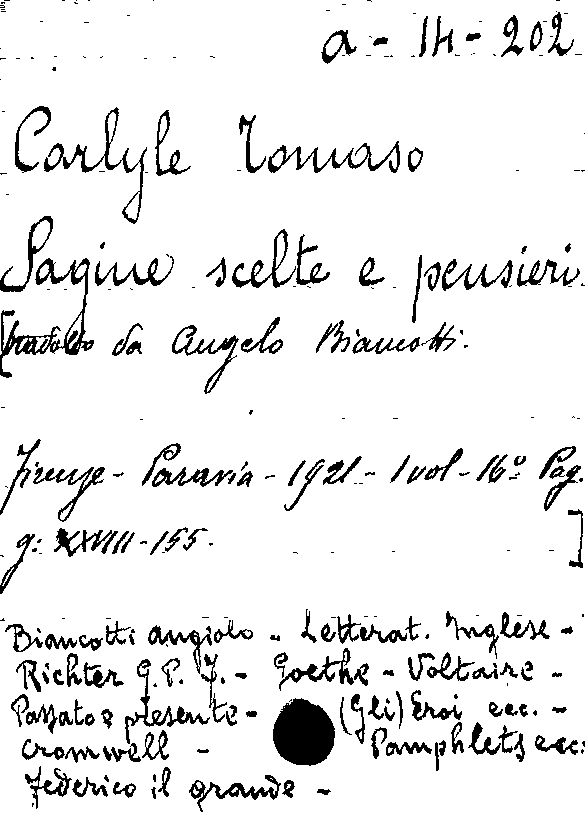 a - 14 - 202
Carlyle Tomaso
Pagine scelte e pensieri
[tradotto da Angelo Biancotti.
Firenze - Paravia - 1921 - 1 vol - 16º Pag.
g: XXVIII - 155. ]
Biancotti Angiolo - Letterat. Inglese -
Richter G. P. F. - Goethe - Voltaire -
Passato e presente - (Gli) Eroi ecc. -
Cromwell - Pamphlets ecc:
Federico il grande -